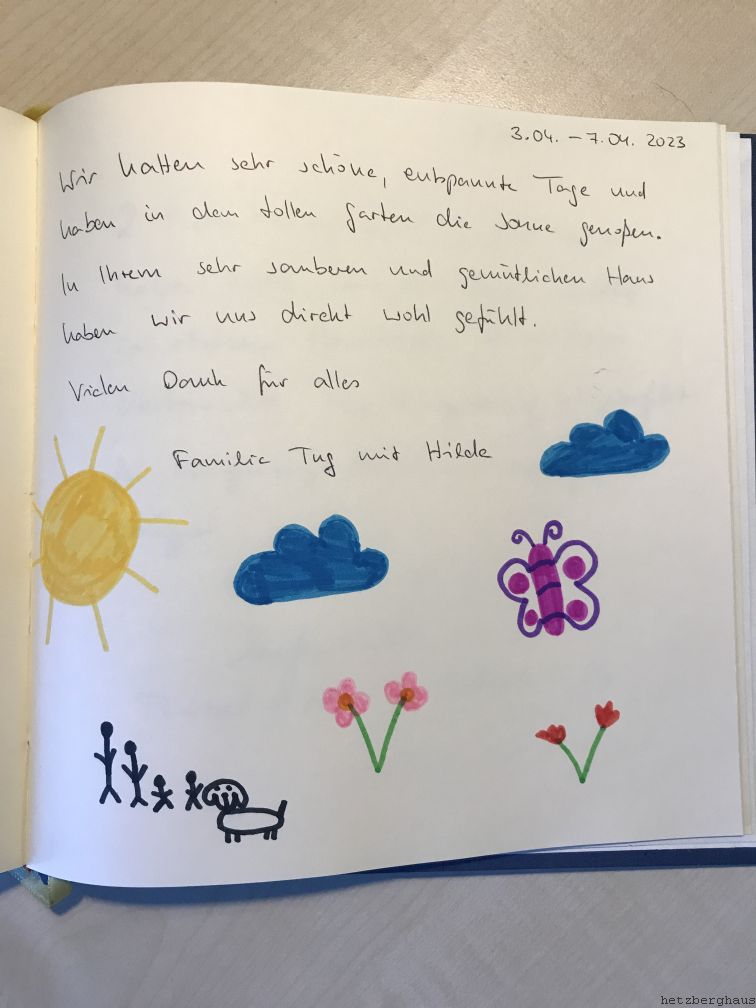 3.04. – 7.04. 2023
Wir hatten sehr schöne, entspannte Tage und
haben in dem tollen Garten die Sonne genoßen.
In Ihrem sehr sauberen und gemütlichen Haus
haben wir uns direkt wohl gefühlt.
Vielen Dank für alles
Familie Tug mit Hilde
hetzberghaus